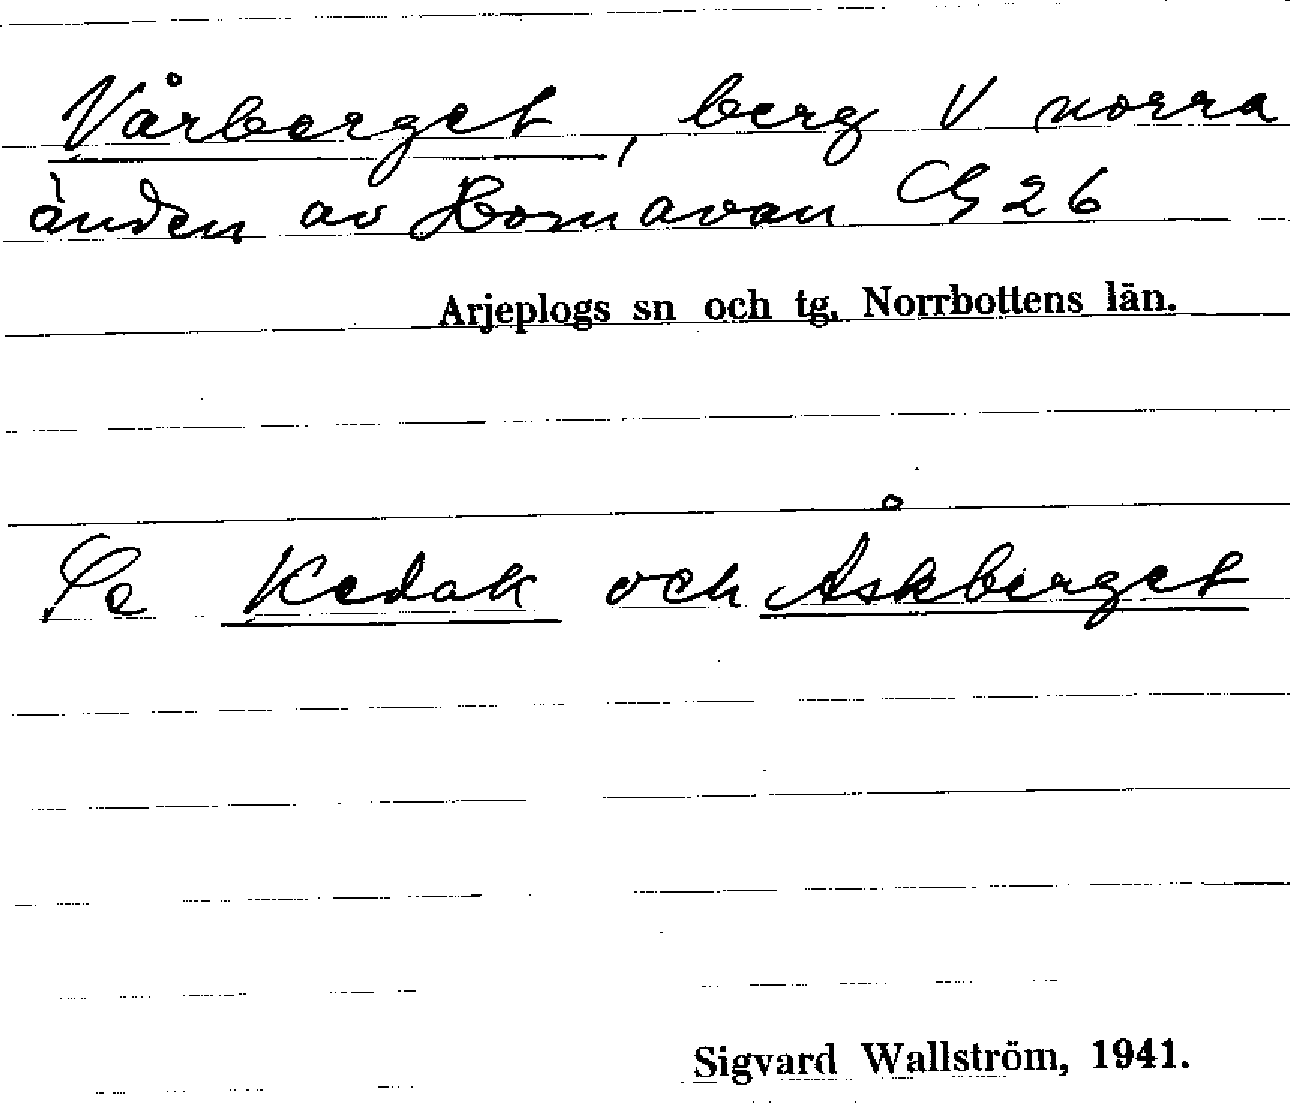 Vårberget, berg V norra
änden av Hornavan G 26
Arjeplogs sn och tg. Norrbottens län.
Se Kedak och Åskberget
Sigvard Wallström, 1941.